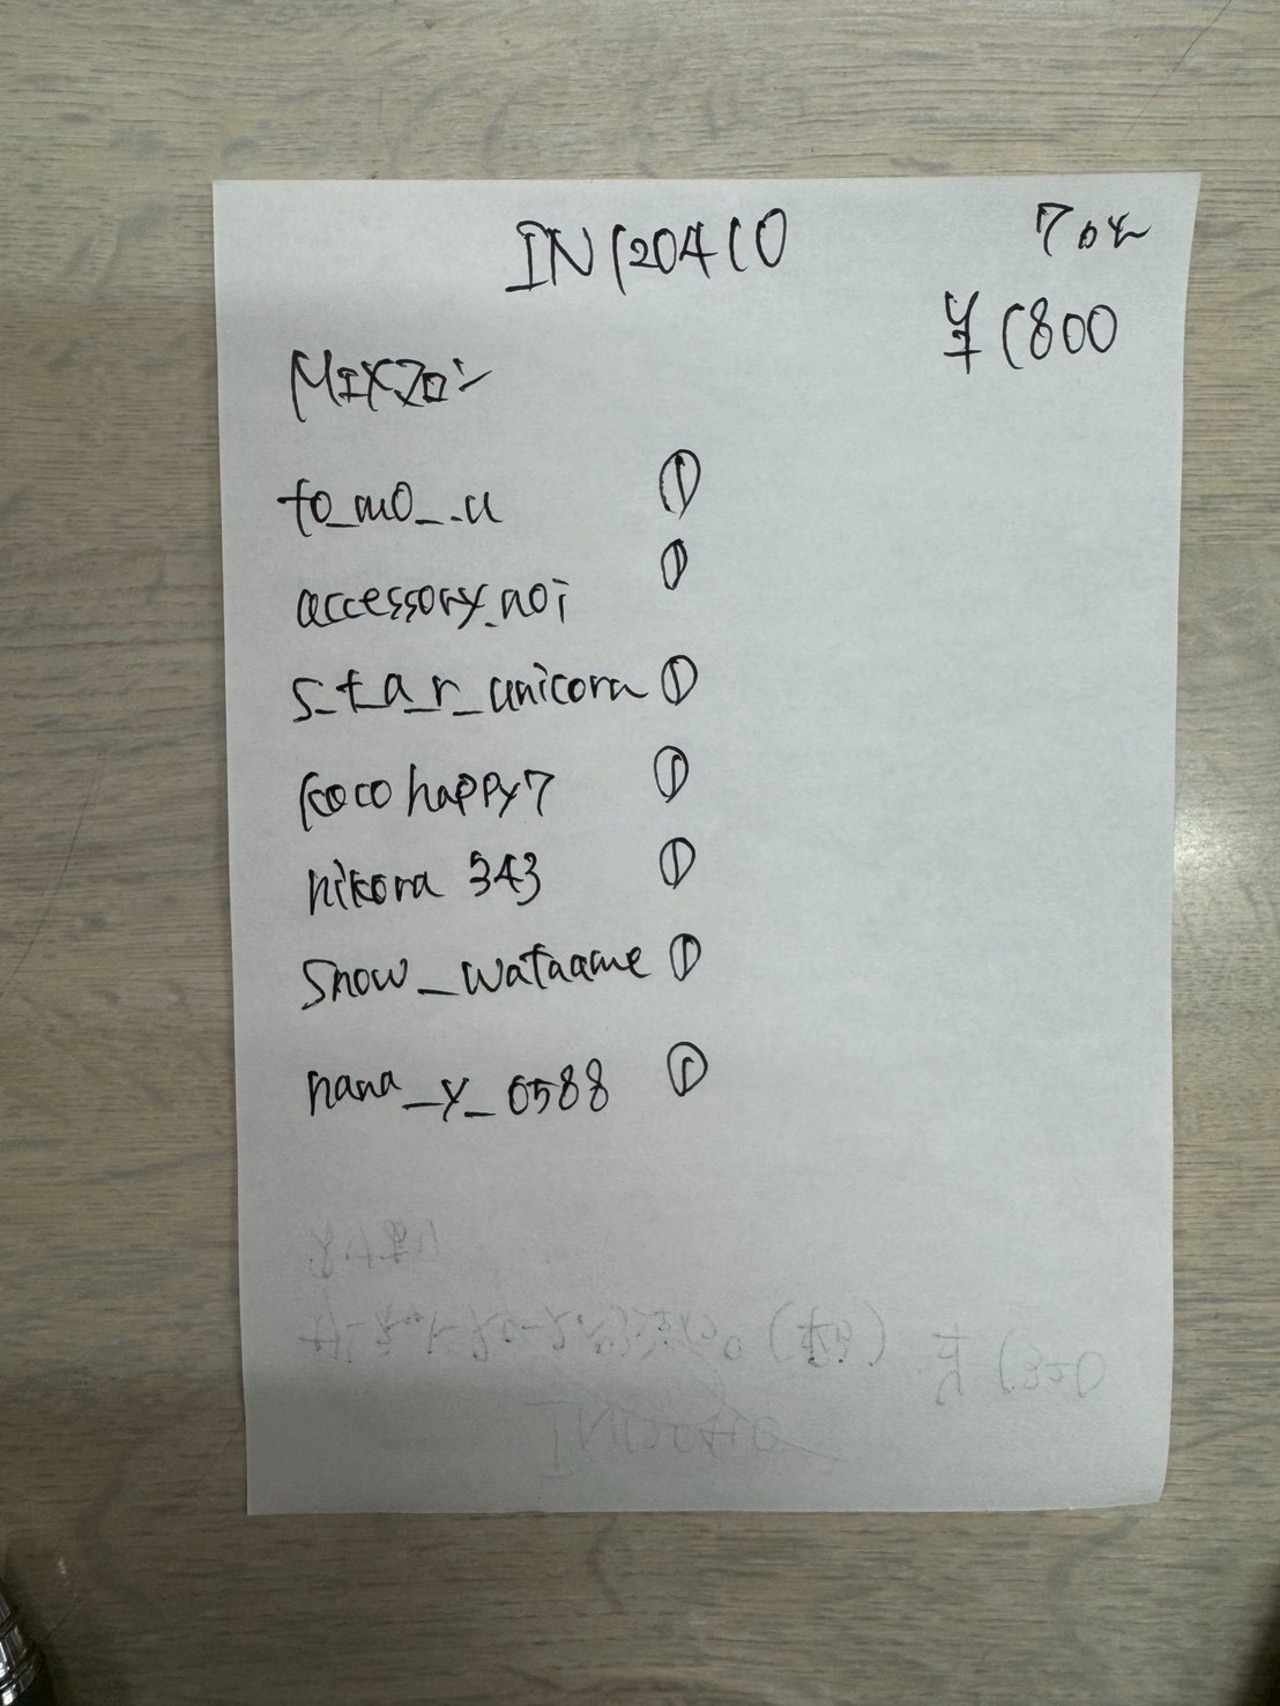 IN120410
70%
¥1800
MIXクロン
to_mo_.u
①
accessory_aoi
①
s_t_a_r_unicorn ①
kocohappy7 ①
nikora 343 ①
snow_wataame ①
nana_y_0588 ①
¥1320
IN120410